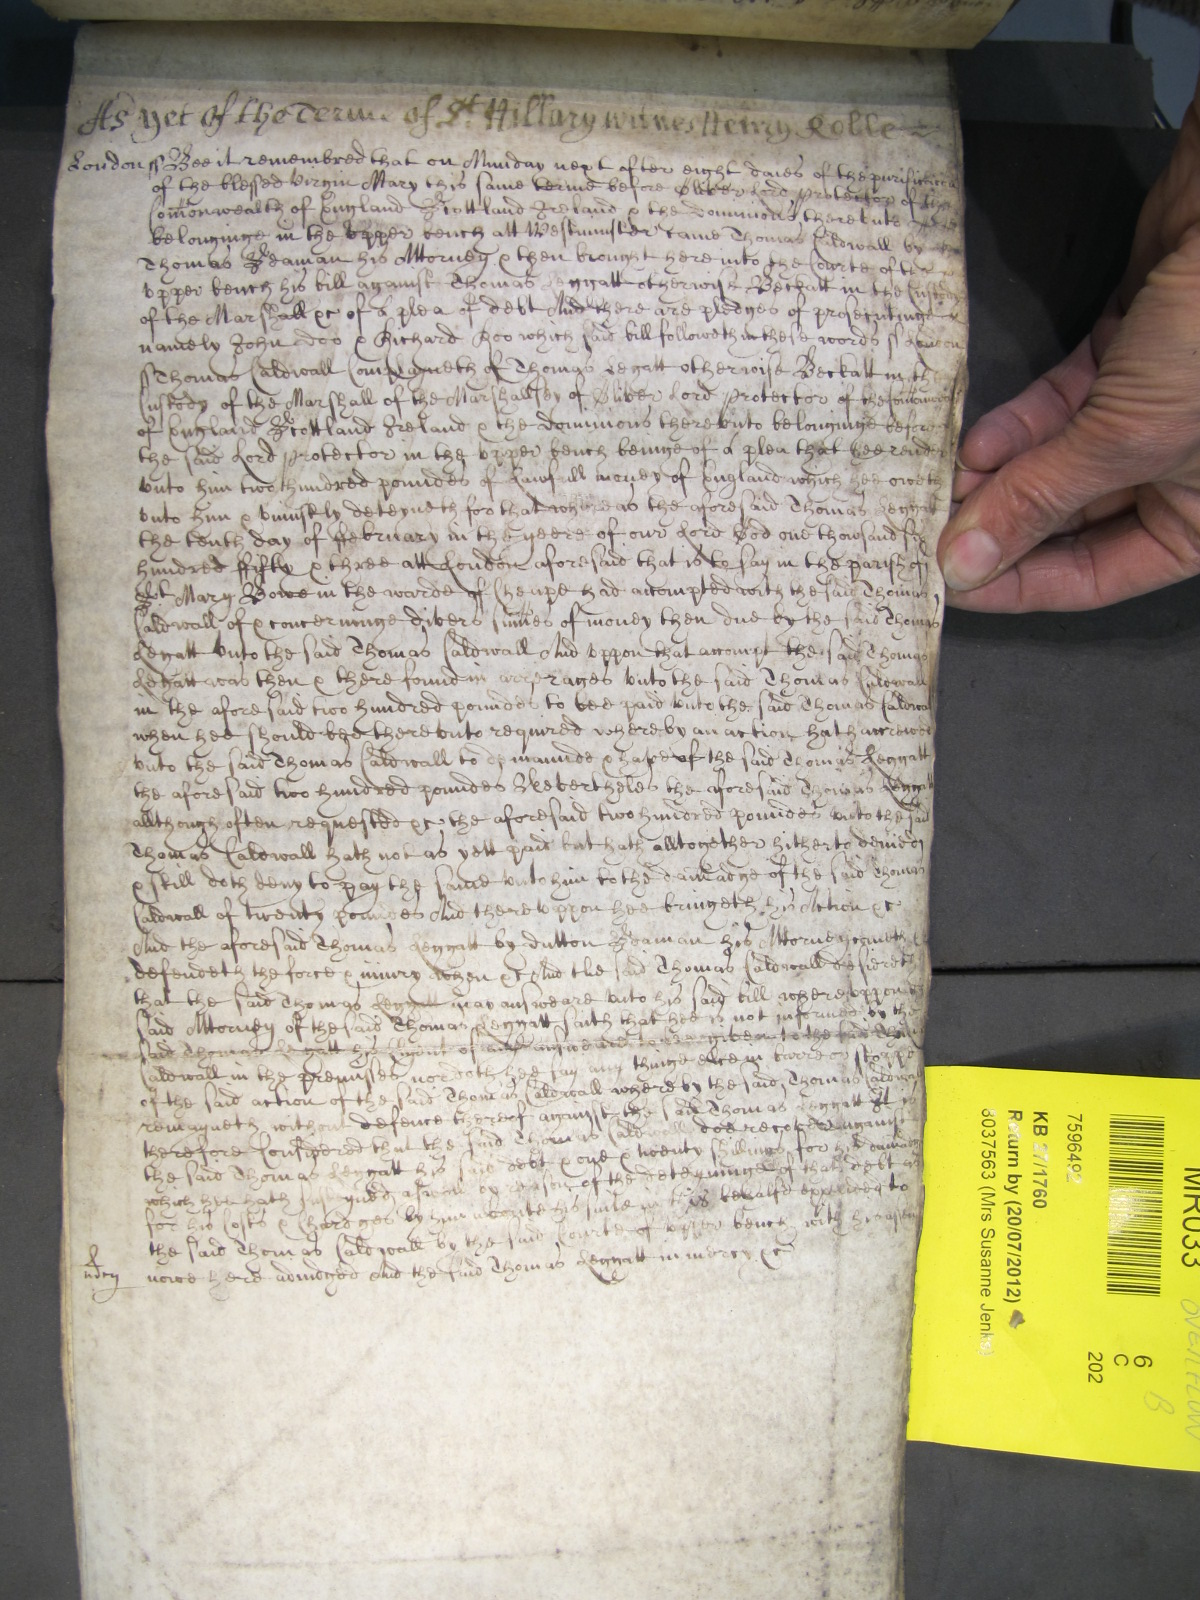 As yet of the Terme of St Hillary witnes Henry Rolle
London ss Bee it remembred that on Munday next after eight daies of the purificac
of the blessed virgin Mary this same terme before Oliver Lord Protector of the
Comonwealth of England Scottland Ireland & the Dominions thereunto
belonginge in the upper bench att Westminster came Thomas Caldwall by
Thomas Seaman his Attorney & then brought here into the Courte of the
upper bench his bill against Thomas Leggatt otherwise Beckatt in the Custody
of the Marshall &c of a plea of debt And there are pledges of prosecutinge
namely John Doo & Richard Roo which said bill followeth in these words ss London
ss Thomas Caldwall Complayneth of Thomas Legatt otherwise Beckatt in the
Custody of the Marshall of the Marshallsey of Oliver Lord Protector of the Comonwe
of England Scottland Ireland & the Dominions thereunto belonginge before
the said Lord Protector in the upper bench beinge of a plea that hee render
unto him two hundred poundes of lawfull money of England which hee oweth
unto him & uniustly deteyneth for that whereas the aforesaid Thomas Leggatt
the tenth day of February in the yeere of our Lord God one thousand six
hundred fifty & three att London aforesaid that is to say in the parish of
St Mary Bowe in the warde of Cheape had accompted with the said Thomas
Caldwall of & concerninge divers sumes of money then due by the said Thomas
Legatt unto the said Thomas Caldwall And uppon that accompt the said Thomas
Legatt was then & there found in arrerages unto the said Thomas Caldwall
in the aforesaid two hundred poundes to bee paid unto the said Thomas Caldwa
when hee should bee thereunto required whereby an action hath accrewed
unto the said Thomas Caldwall to demaunde & have of the said Thomas Leggatt
the aforesaid two hundred poundes Neverthelesse the aforesaid Thomas Leggatt
allthough often requested &c the aforesaid two hundred poundes unto the said
Thomas Caldwall hath not as yett paid but hath alltogether hitherto denied
& still doth deny to pay the same unto him to the damadge of the said Thomas
Caldwall of twenty poundes And thereuppon hee bringeth his Action &c
And the aforesaid Thomas Leggatt by Dutton Seaman his Attorney cometh &
defendeth the force & iniury when &c And the said Thomas Caldwall desireth
that the said Thomas Leggatt may answeare unto his said bill whereuppon the
said Attorney of the said Thomas Leggatt saith that hee is not informed by the
said Thomas Legatt his Clyent of any answeare to bee given to the said Thomas
Caldwall in the premisses nor doth hee say any thinge else in barre or stoppe
of the said action of the said Thomas Caldwall whereby the said Thomas Caldwall
remayneth without defence thereof against the said Thomas Leggatt It is
therefore Considered that the said Thomas Caldwall doe recover against
the said Thomas Leggatt his said debt & one & twenty shillings for his damadg
which hee hath susteyned aswell by reason of the deteyninge of that debt as
for his Costs & Chardges by him aboute his suite in this behalfe expended to
the said Thomas Caldwall by the said Courte of upper bench with his assent
nowe here adiudged And the said Thomas Leggatt in mercy &c
mercy
MR033
7596492
6
C
202
KB 27/1760
Return by (20/07/2012)
8037563 (Mrs Susanne Jenks)
OVERFLOW
B